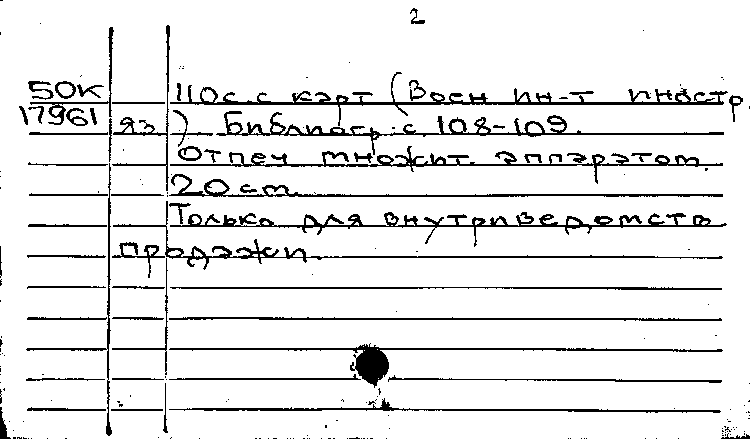 2
50К 110с. с карт (Воен ин-т иностр.
17961 яз.) Библиогр: с. 108-109.
Отпеч множит. аппаратом.
20 см.
Только для внутриведомств
продажи.